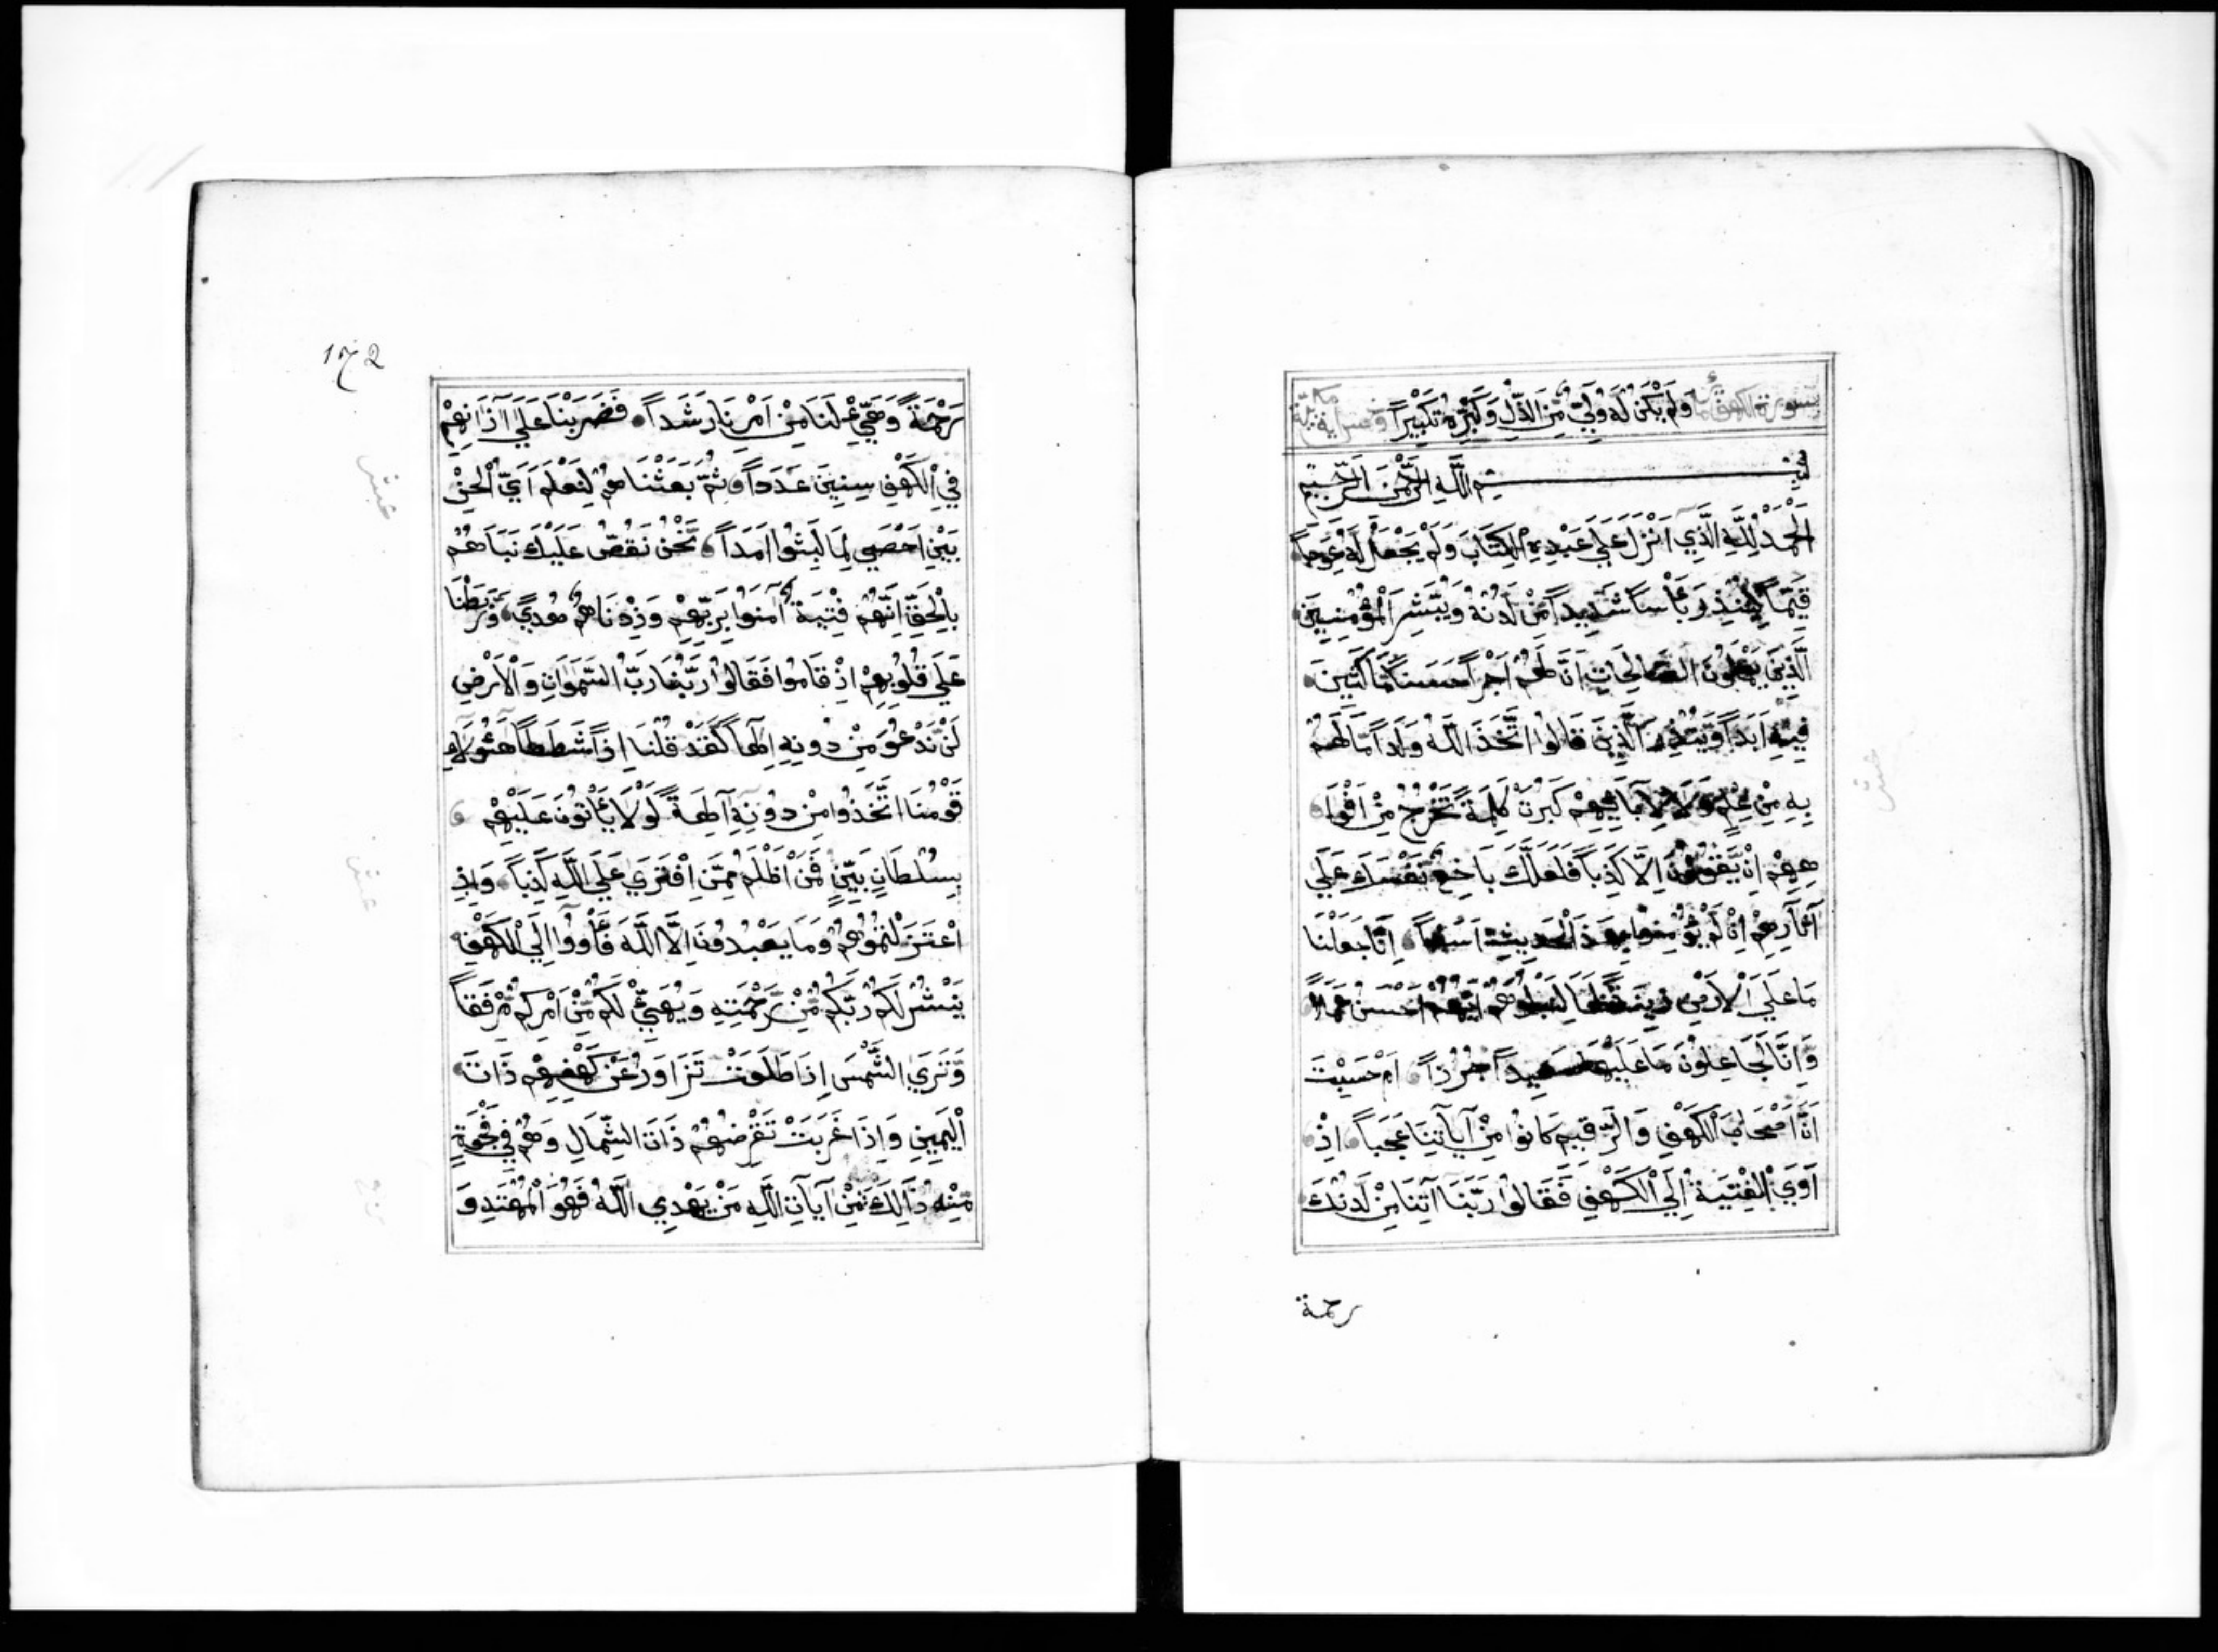 سورة الكهف مائة ولم يكن له ولي من الذل وكبره تكبيرا وعشر اية مكية
بسم الله الرحمن الرحيم
اَلْحَمْدُ لِلَّهِ الَّذِي اَنْزَلَ عَلَي عَبْدِهِ الْكِتَابَ وَلَمْ يَجْعَلْ لَهُ عِوَجاً
قَيِّماً لِيُنْذِرَ بَأْساً شَدِيداً مِّنْ لَدُنْهُ وَيُبَشِّرَ الْمُؤْمِنِينَ
الَّذِينَ يَعْمَلُونَ الصَّالِحَاتِ اَنَّ لَهُمْ اَجْراً حَسَناً مَّاكِثِينَ
فِيهِ اَبَداً وَّيُنْذِرَ الَّذِينَ قَالُوا اتَّخَذَ اللَّهُ وَلَداً مَّا لَهُمْ
بِهِ مِنْ عِلْمٍ وَّلَا لِاٰبَائِهِمْ كَبُرَتْ كَلِمَةً تَخْرُجُ مِنْ اَفْوَا
هِهِمْ اِنْ يَّقُولُونَ اِلَّا كَذِباً فَلَعَلَّكَ بَاخِعٌ نَّفْسَكَ عَلَي
آثَارِهِمْ اِنْ لَّمْ يُؤْمِنُوا بِهٰذَا الْحَدِيثِ اَسَفاً اِنَّا جَعَلْنَا
مَا عَلَي الْاَرْضِ زِينَةً لَّهَا لِنَبْلُوَهُمْ اَيُّهُمْ اَحْسَنُ عَمَلاً
وَاِنَّا لَجَاعِلُونَ مَا عَلَيْهَا صَعِيداً جُرُزاً اَمْ حَسِبْتَ
اَنَّ اَصْحَابَ الْكَهْفِ وَالرَّقِيمِ كَانُوا مِنْ آيَاتِنَا عَجَباً اِذْ
اَوَي الْفِتْيَةُ اِلَي الْكَهْفِ فَقَالُوا رَبَّنَا آتِنَا مِنْ لَدُنْكَ
رحمة
172
رَحْمَةً وَّهَيِّئْ لَنَا مِنْ اَمْرِنَا رَشَداً فَضَرَبْنَا عَلَي آذَانِهِمْ
فِي الْكَهْفِ سِنِينَ عَدَداً ثُمَّ بَعَثْنَاهُمْ لِنَعْلَمَ اَيُّ الْحِزْ
بَيْنِ اَحْصَي لِمَا لَبِثُوا اَمَداً نَحْنُ نَقُصُّ عَلَيْكَ نَبَاَهُمْ
بِالْحَقِّ اِنَّهُمْ فِتْيَةٌ آمَنُوا بِرَبِّهِمْ وَزِدْنَاهُمْ هُدًي وَّرَبَطْنَا
عَلَي قُلُوبِهِمْ اِذْ قَامُوا فَقَالُوا رَبُّنَا رَبُّ السَّمٰوَاتِ وَالْاَرْضِ
لَنْ نَّدْعُوَ مِنْ دُونِهِ اِلٰهاً لَقَدْ قُلْنَا اِذاً شَطَطاً هٰؤُلَاءِ
قَوْمُنَا اتَّخَذُوا مِنْ دُونِهِ آلِهَةً لَوْلَا يَأْتُونَ عَلَيْهِمْ
بِسُلْطَانٍ بَيِّنٍ فَمَنْ اَظْلَمُ مِمَّنِ افْتَرَي عَلَي اللَّهِ كَذِباً وَاِذِ
اعْتَزَلْتُمُوهُمْ وَمَا يَعْبُدُونَ اِلَّا اللَّهَ فَأْوُوا اِلَي الْكَهْفِ
يَنْشُرْ لَكُمْ رَبُّكُمْ مِّنْ رَّحْمَتِهِ وَيُهَيِّئْ لَكُمْ مِّنْ اَمْرِكُمْ مِّرْفَقاً
وَّتَرَي الشَّمْسَ اِذَا طَلَعَتْ تَزَاوَرُ عَنْ كَهْفِهِمْ ذَاتَ
الْيَمِينِ وَاِذَا غَرَبَتْ تَقْرِضُهُمْ ذَاتَ الشِّمَالِ وَهُمْ فِي فَجْوَةٍ
مِّنْهُ ذَالِكَ مِنْ آيَاتِ اللَّهِ مَنْ يَهْدِي اللَّهُ فَهُوَ الْمُهْتَدِ وَ